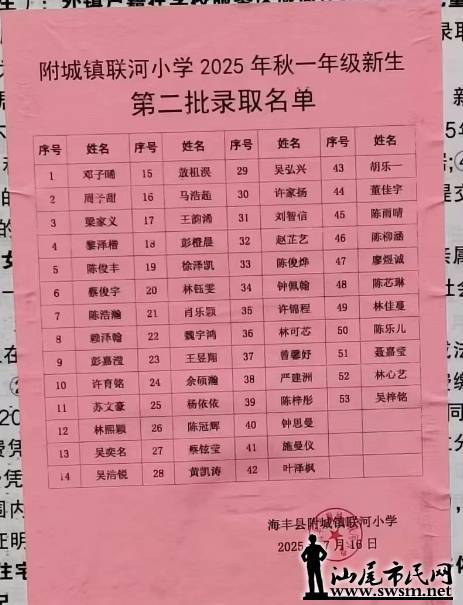 附城镇联河小学 2025 年秋一年级新生
第二批录取名单
序号 姓名 序号 姓名 序号 姓名 序号 姓名
1 邓子晞 15 敖祖淏 29 吴弘兴 43 胡乐一
2 周子甜 16 马浩超 30 许家扬 44 董佳宇
3 梁家义 17 王韵浠 31 刘智信 45 陈雨晴
4 黎泽楷 18 彭橙晨 32 赵芷艺 46 陈柳涵
5 陈俊丰 19 徐泽凯 33 陈俊烨 47 廖煜诚
6 蔡俊宇 20 林钰雯 34 钟佩翰 48 陈芯琳
7 陈浩瀚 21 肖乐颖 35 许锦程 49 林佳蔓
8 赖泽翰 22 魏宇鸿 36 林可芯 50 陈乐儿
9 彭嘉滢 23 王昱翔 37 曾馨妤 51 聂嘉莹
10 许育铭 24 余硕瀚 38 严建洲 52 林心艺
11 苏文豪 25 杨依依 39 陈梓彤 53 吴梓铭
12 林熙颖 26 陈冠辉 40 钟思曼
13 吴奕名 27 蔡铉莹 41 施曼仪
14 吴浩锐 28 黄凯涛 42 叶泽枫
海丰县附城镇联河小学
2025 7 月 16 日
汕尾市民网
www.swsm.net